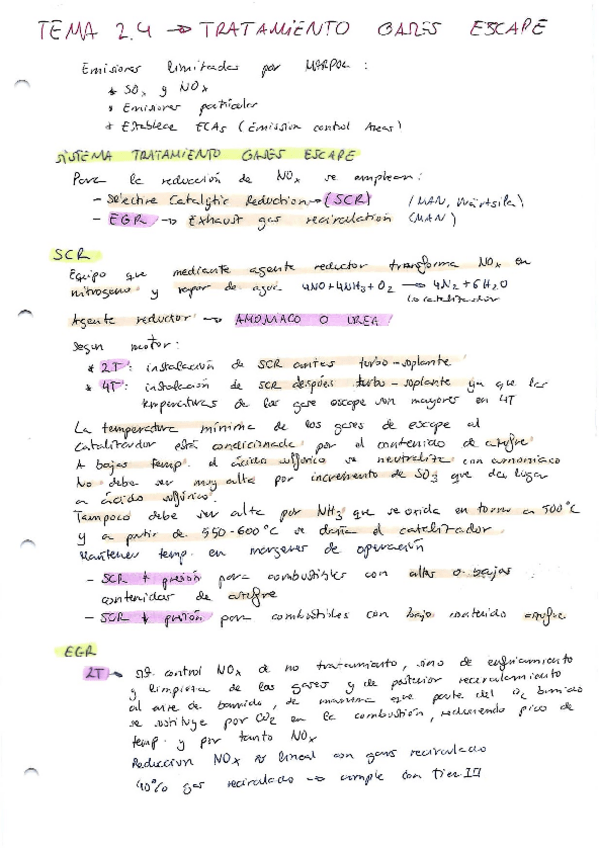 TEMA 2.4 → TRATAMIENTO GASES ESCAPE
Emisiones limitadas por MARPOL :
* SOx y NOx
* Emisiones partículas
* Establece ECAs (Emission control Areas)
SISTEMA TRATAMIENTO GASES ESCAPE
Para la reducción de NOx se emplean:
- Selective Catalytic Reduction → (SCR) (MAN, Wärtsilä)
- EGR → Exhaust gas recirculation (MAN)
SCR
Equipo que mediante agente reductor transforma NOx en
nitrogeno y vapor de agua. 4NO+4NH3+O2 → 4N2+6H2O
catalizador
Agente reductor → AMONIACO O UREA
Segun motor:
* 2T: instalación de SCR antes turbo-soplante
* 4T: instalación de SCR después turbo-soplante ya que las
temperaturas de los gase escape son mayores en 4T
La temperatura minima de los gases de escape al
catalizador está condicionada por el contenido de azufre
A bajas temp. el ácido sulfúrico se neutraliza con amoniaco
No debe ser muy alta por incremento de SO3 que da lugar
a ácido sulfúrico.
Tampoco debe ser alta por NH3 que se oxida en torno a 500°C
y a partir de 550-600°C se daña el catalizador
Mantener temp. en margenes de operación
- SCR ↑ presión para combustibles con altos o bajos
contenidos de azufre
- SCR ↓ presión para combustibles con bajo contenido azufre
EGR
2T → control NOx de no tratamiento, sino de enfriamiento
y limpieza de los gases y de posterior recirculamiento
al aire de barrido, de manera que parte del O2 barrido
se sustituye por CO2 en la combustión, reduciendo pico de
temp. y por tanto NOx
Reduccion NOx es lineal con gases recirculado
40% gas recirculado → cumple con tier III